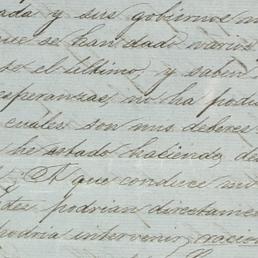 ada y sus gobiernos m
que se han dado varios
so el último, y saben
esperanzas, no ha podi
cuales son mis deberes
he estado haciendo, de
Y que conduce mi
tes podrian directame
podria intervenir, racio